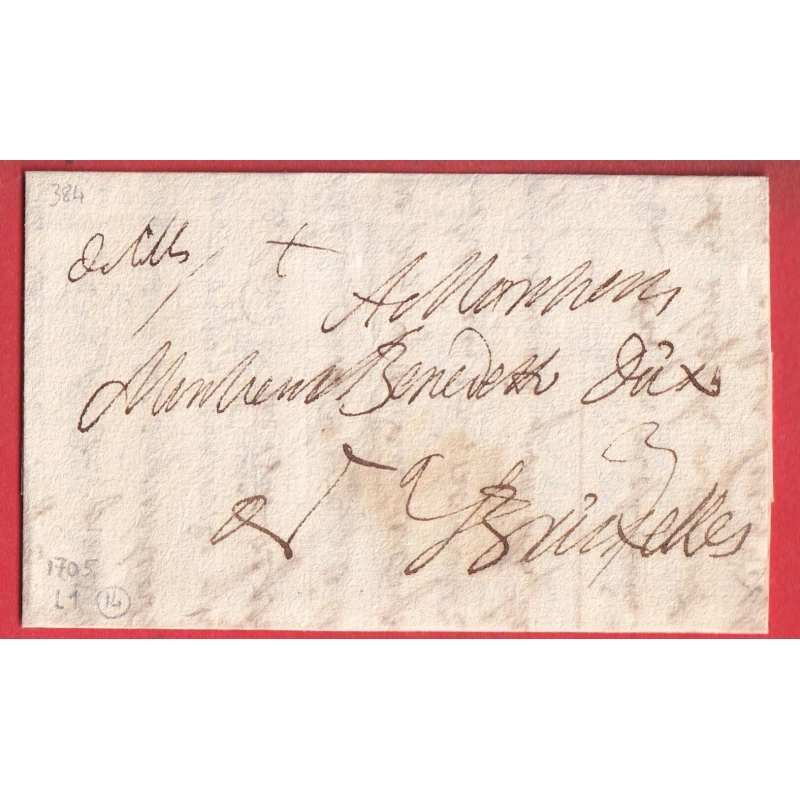 384
de Lille +
A Monsieur
Monsieur Benedetto Düx
a Brüxelles
1705
L1 14